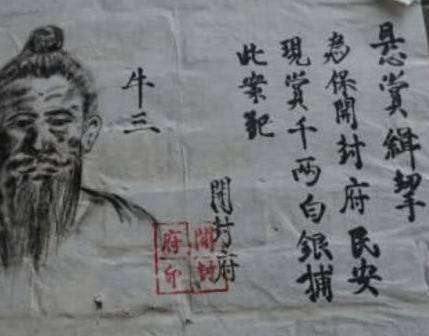 悬赏緝挈
為保開封府民安
現賞千两白銀捕
此案犯
開封府
牛三
開封
府印